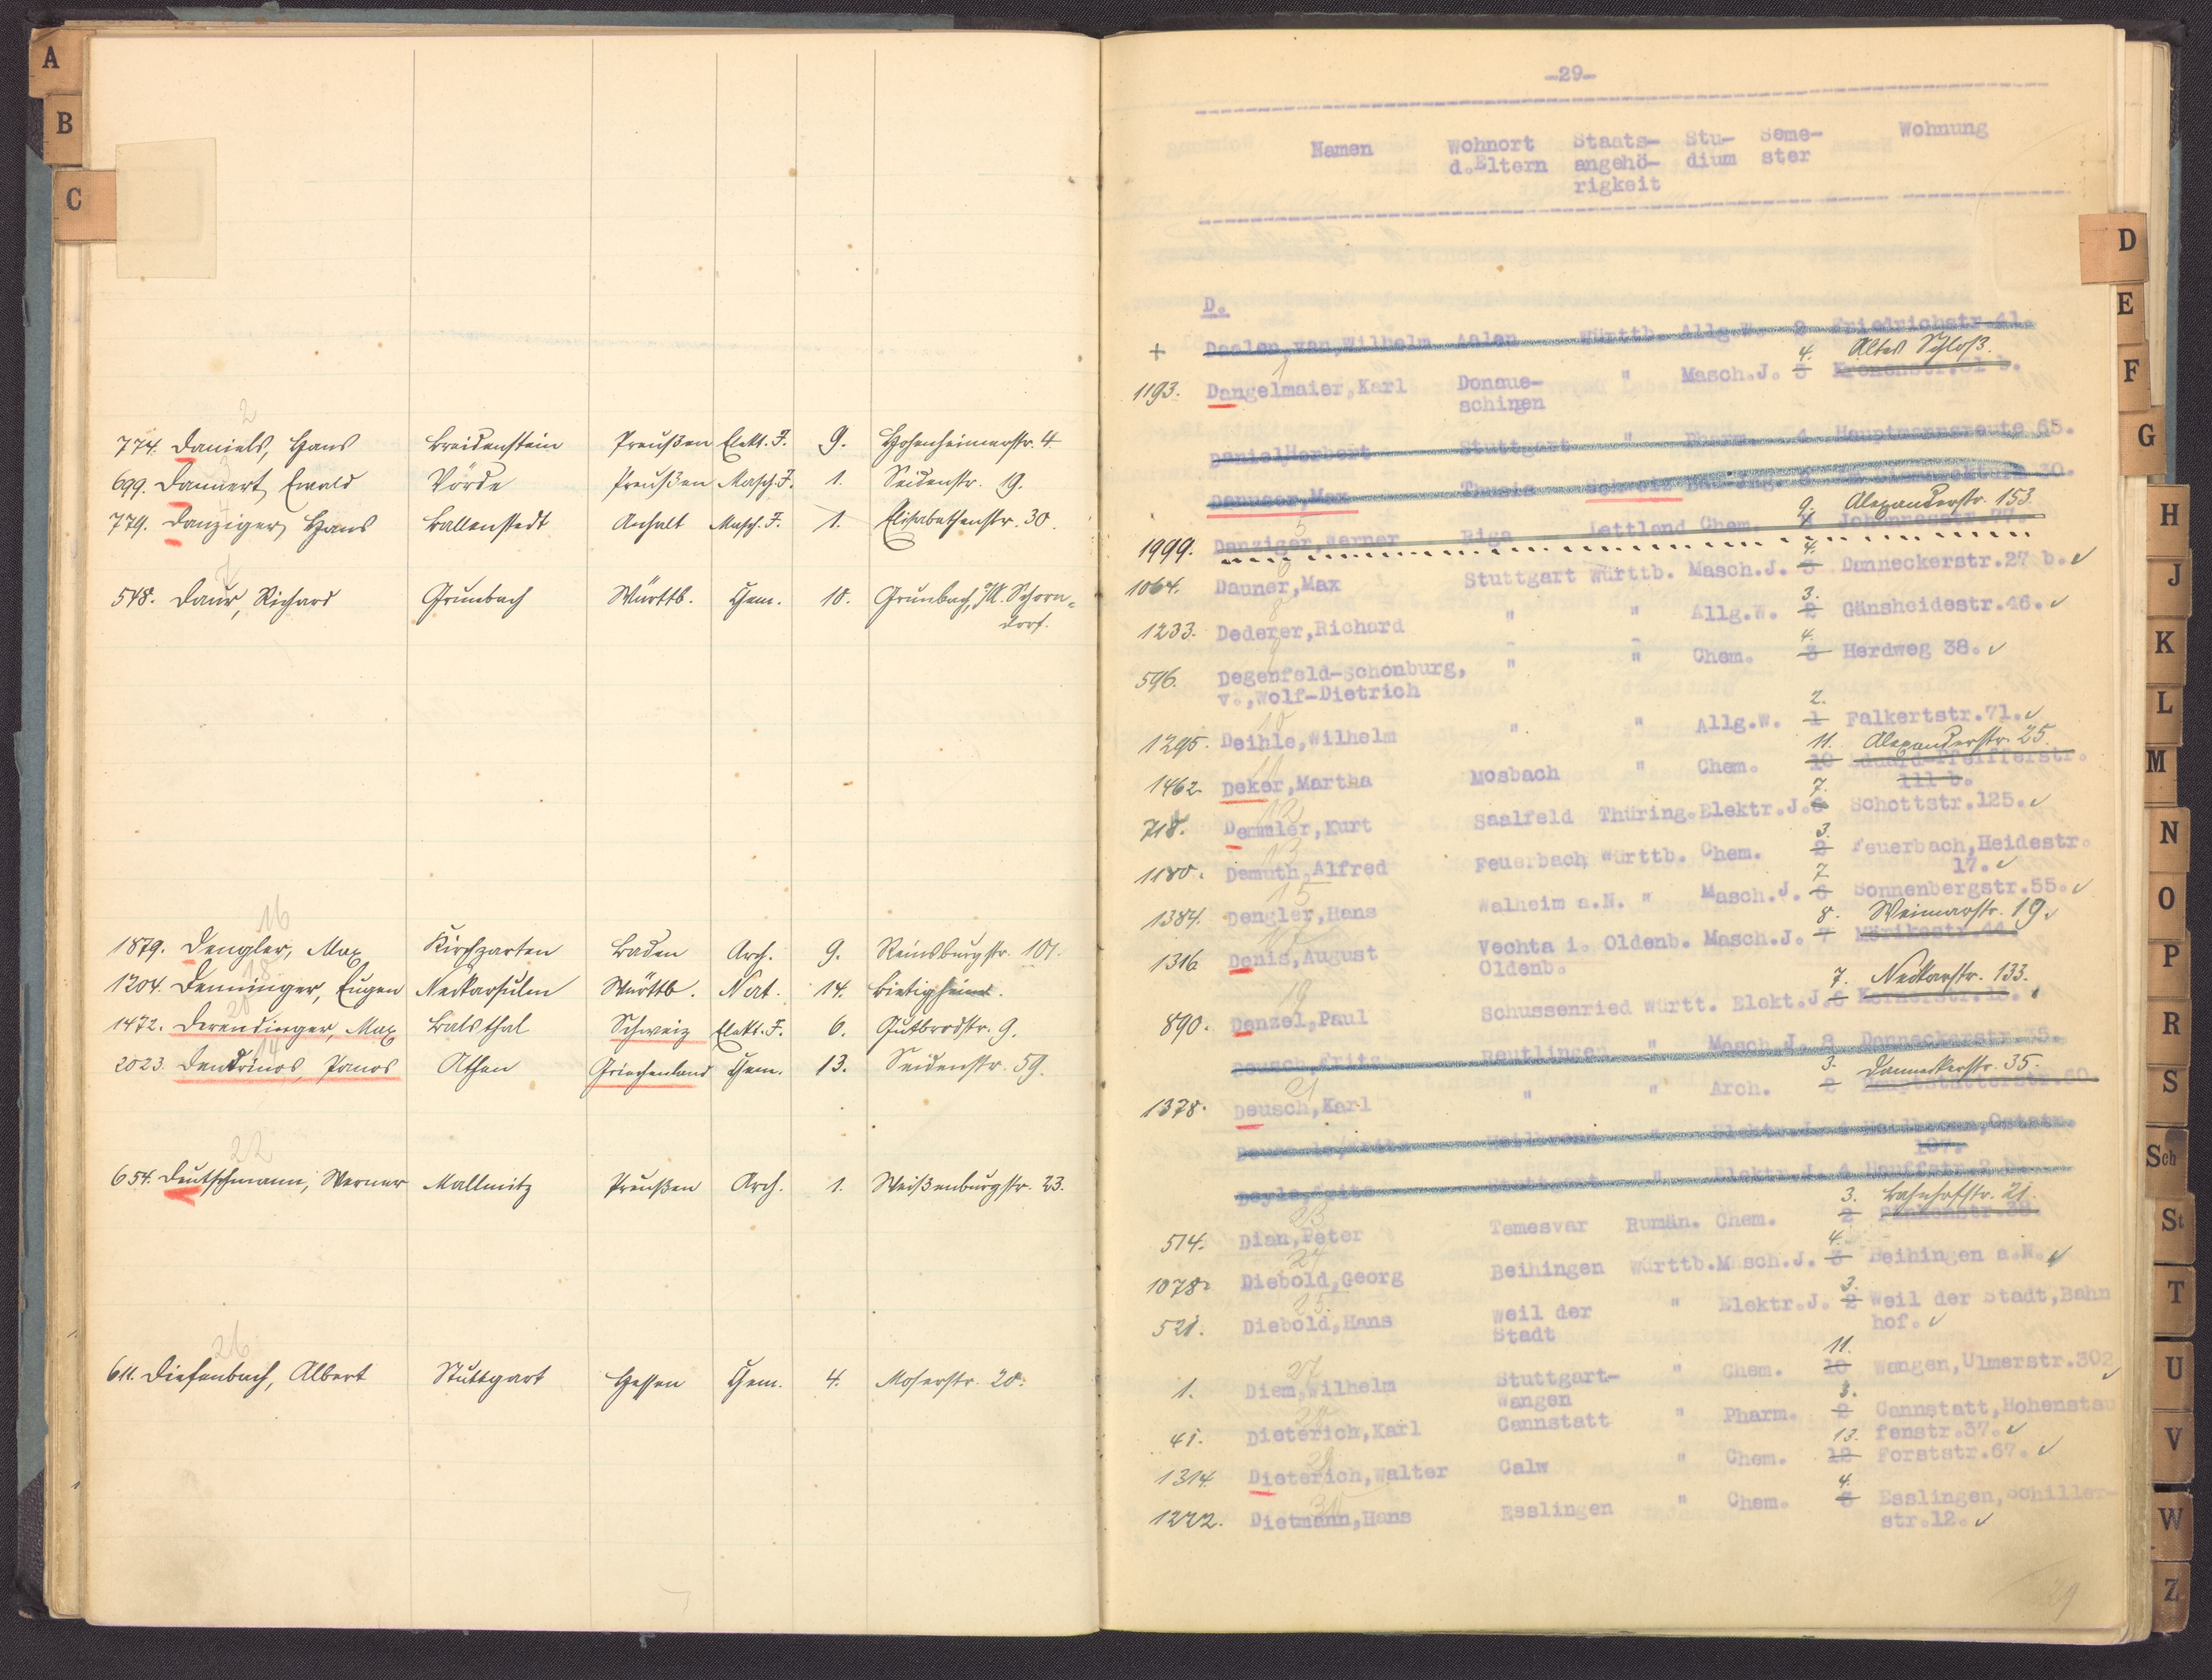 A
B
C
2
774. Daniels, Hans Breidenstein Preußen Elekt. J. 9. Hohenheimerstr. 4
699. Dannert, Ewald Vörde Preußen Masch. J. 1. Seidenstr. 19.
779. Danziger, Hans Ballenstedt Anhalt Masch. J. 1. Elisabethenstr. 30.
7
548. Daur, Richard Grunbach Württb. Chem. 10. Grunbach, O/A. Schorn=
dorf.
16
1879. Dengler, Max Kirchzarten Baden Arch. 9. Reinsburgstr. 101.
18
1204. Denninger, Eugen Neckarsulm Württb. Nat. 14. Bietigheim.
20
1472. Derendinger, Max Balsthal Schweiz Elekt. J. 6. Gutbrodstr. 9.
14
2023. Dendrinos, Panos Athen Griechenland Chem. 13. Seidenstr. 59.
22
654. Deutschmann, Werner Mallmitz Preußen Arch. 1. Weißenburgstr. 23.
26
611. Diefenbach, Albert Stuttgart Hessen Chem. 4. Moserstr. 20.
-29-
Namen Wohnort Staats- Stu- Seme- Wohnung
d.Eltern angehö- dium ster
rigkeit
D.
+ Daalen,van,Wilhelm Aalen Württb. Allg.W. 2 Friedrichstr.41.
1 4. Altes Schloß.
1193. Dangelmaier,Karl Donaue- " Masch.J. 3 Kronenstr.51 b.
schingen
Daniel,Herbert Stuttgart " Pharm. 4 Hauptmannsreute 65.
Danuser,Max Thusis Schweiz Bau-Ing. 30.
5 9. Alexanderstr. 153.
1999. Danziger,Werner Riga Lettland Chem. Johannesstr.77.
6 4.
1064. Dauner,Max Stuttgart Württb. Masch.J. 3 Danneckerstr.27 b. ✓
8 3.
1233. Dederer,Richard " " Allg.W. 2 Gänsheidestr.46. ✓
9 4.
596. Degenfeld-Schonburg, " " Chem. 3 Herdweg 38. ✓
v.,Wolf-Dietrich
10 2.
1295. Deihle,Wilhelm " " Allg.W. 1 Falkertstr.71. ✓
11 11. Alexanderstr. 25.
1462. Deker,Martha Mosbach " Chem. 10 Eduard-Pfeifferstr.
111 b.
12 7.
718. Demmler,Kurt Saalfeld Thüring. Elektr.J. 6 Schottstr.125. ✓
13 3.
1180. Demuth,Alfred Feuerbach Württb. Chem. 2 Feuerbach,Heidestr.
17. ✓
15 7
1384. Dengler,Hans Walheim a.N. " Masch.J. 6 Sonnenbergstr.55. ✓
17 8. Weimarstr. 19. ✓
1316 Denis,August Vechta i. Oldenb. Masch.J. 7 Mörikestr.44.
Oldenb.
19 7. Neckarstr. 133.
890. Denzel,Paul Schussenried Württ. Elekt.J. 6 Kernerstr.13.
Deusch,Fritz Reutlingen " Masch.J. 8 Danneckerstr.35.
21 3. Danneckerstr. 35.
1378. Deusch,Karl " " Arch. 2 Hauptstätterstr.60.
Heilbronn " Elektr.J. 4 Heilbronn,Oststr.
107.
Deyle,Fritz Stuttgart " Elektr.J. 4 Hauffstr.2 b.
23 3. Bahnhofstr. 21.
514. Dian,Peter Temesvar Rumän. Chem. 2 Finkenstr.38.
24 4.
1078. Diebold,Georg Beihingen Württb. Masch.J. 3 Beihingen a.N. ✓
25. 3.
521. Diebold,Hans Weil der " Elektr.J. 2 Weil der Stadt,Bahn
Stadt hof. ✓
27 11.
1. Diem,Wilhelm Stuttgart- " Chem. 10 Wangen,Ulmerstr.302 ✓
Wangen
28 3.
41. Dieterich,Karl Cannstatt " Pharm. 2 Cannstatt,Hohenstau
fenstr.37. ✓
29 13.
1314. Dieterich,Walter Calw " Chem. 12 Forststr.67. ✓
30 4.
1222. Dietmann,Hans Esslingen " Chem. 3 Esslingen,Schiller-
str.12. ✓
29
D
E
F
G
H
J
K
L
M
N
O
P
R
S
Sch
St
T
U
V
W
Z